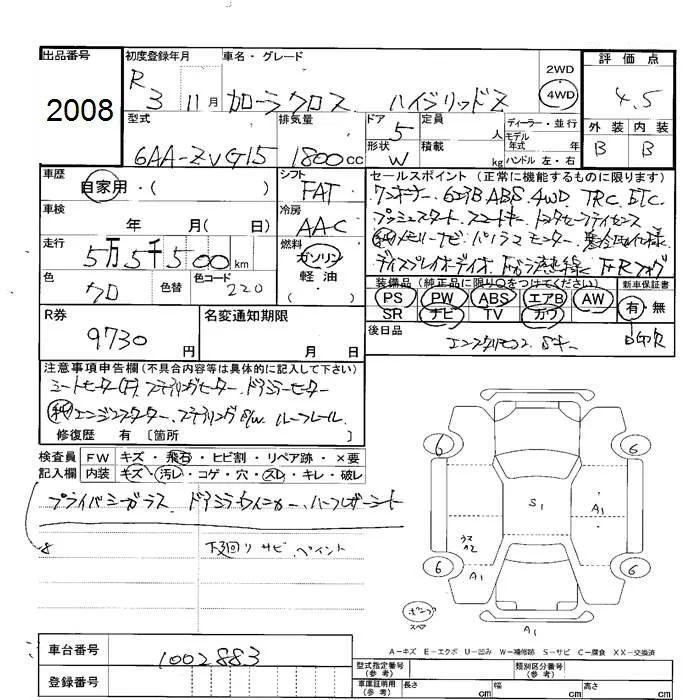 出品番号 初度登録年月 車名・グレード 2WD 評価点
2008 R 3 11月 カローラクロス ハイブリッドZ 4WD 4.5
型式 排気量 ドア 5 定員 人 ディーラー・並行 外装 内装
6AA-ZVG15 1800cc 形状 W 積載 kg モデル年式 年 B B
ハンドル 左・右
車歴 シフト セールスポイント (正常に機能するものに限ります)
自家用・( ) FAT ワンオーナー 6エアB ABS 4WD TRC ETC
車検 冷房 プッシュスタート スマートキー トヨタセーフティセンス
年 月( 日) AAC 純メモリーナビ パノラマモニター 寒冷地仕様
走行 燃料 ディスプレイオーディオ
5万5千500km ガソリン・軽油・( )
色 色替 色コード 装備品 (純正品に限り○をつけてください) 新車保証書
クロ 220 PS PW ABS エアB AW 有・無
SR ナビ TV カワ
R券 名変通知期限 後日品
9730円 月 日
注意事項申告欄(不具合内容等は具体的に記入して下さい)
シートヒーター(F) ステアリングヒーター
純エンジンスターター ステアリングS/W ルーフレール
修復歴 有 〔箇所
検査員 FW キズ・飛石・ヒビ割・リペア跡・×要
記入欄 内装 キズ・汚レ・コゲ・穴・スレ・キレ・破レ
プライバシーガラス ドアミラーウインカー ハーフレザーシート
下廻り サビ ペイント
6 6
S1 A1
6 A1 6
A1
A-キズ E-エクボ U-凹み W-補修跡 S-サビ C-腐食 XX-交換済
車台番号 1002883 型式指定番号(参考) 類別区分番号(参考)
登録番号 車庫証明用(参考) 長さ cm 幅 cm 高さ cm